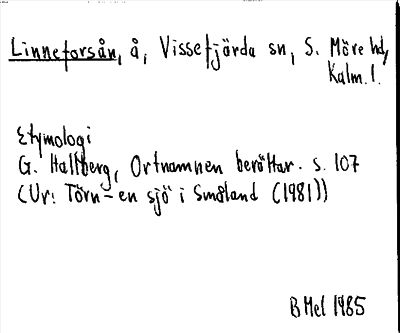 Linneforsån, å, Vissefjärda sn, S. Möre hd,
Kalm. l.
Etymologi
G. Hallberg, Ortnamnen berättar. s. 107
(Ur: Törn - en sjö i Småland (1981))
B Mel 1985